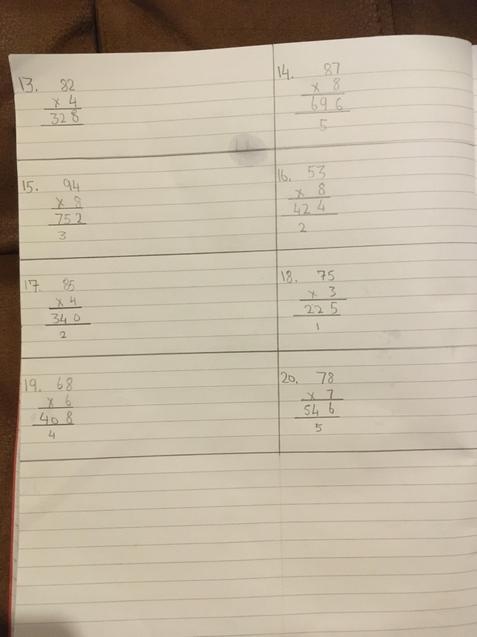 13. 82
x 4
328
14. 87
x 8
696
5
15. 94
x 8
752
3
16. 53
x 8
424
2
17. 85
x 4
340
2
18. 75
x 3
225
1
19. 68
x 6
408
4
20. 78
x 7
546
5